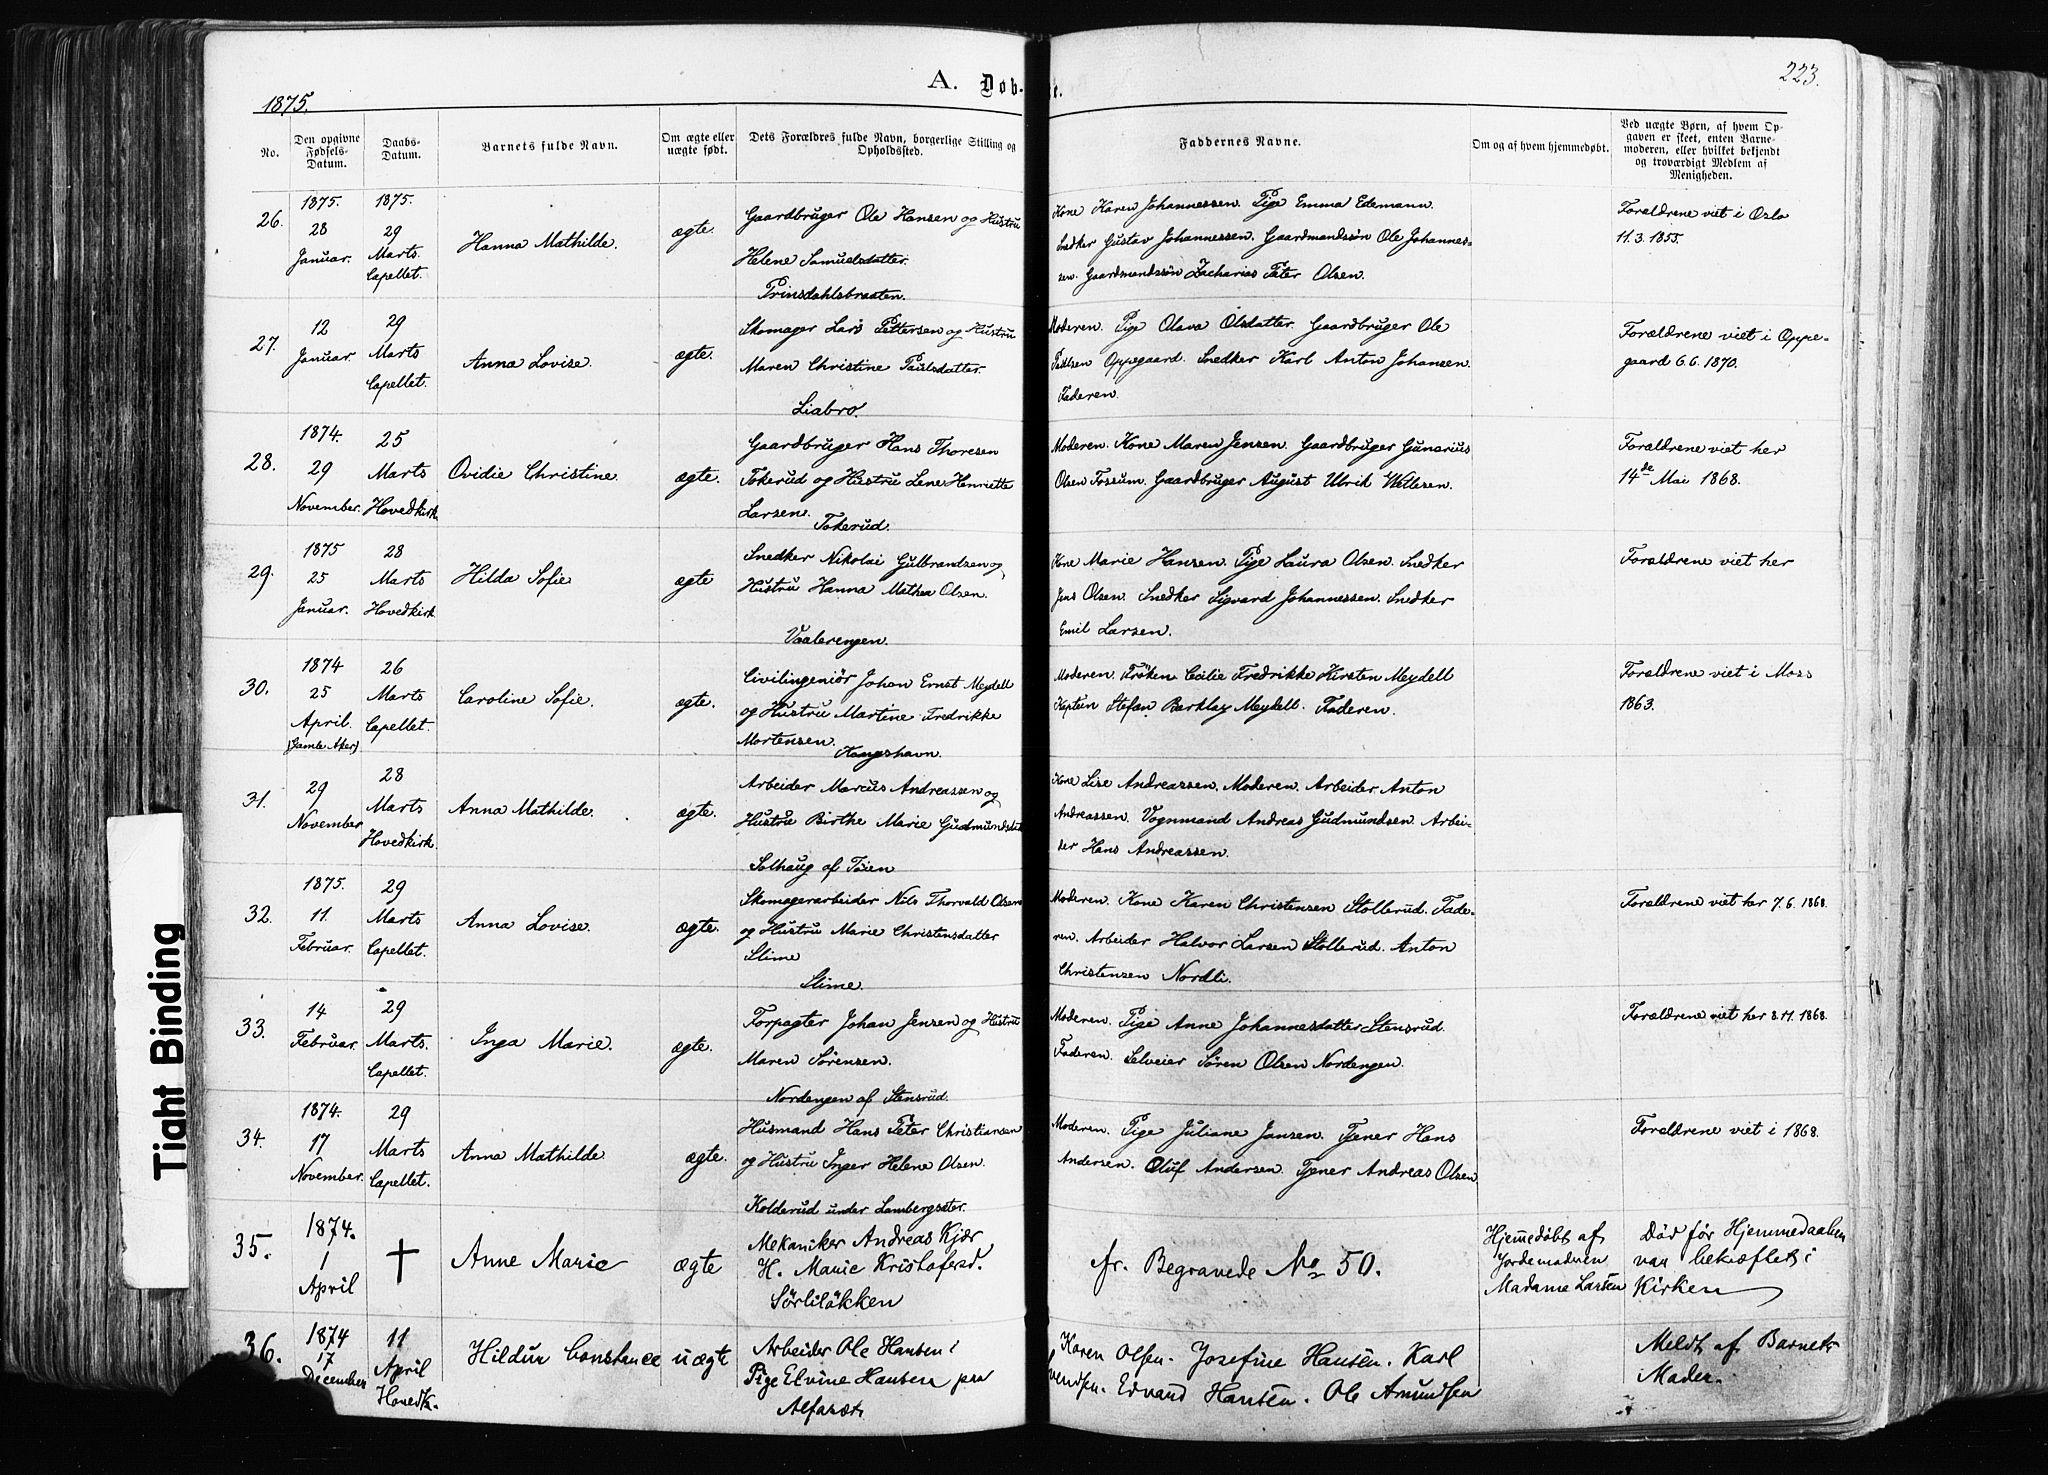 223.
1875.
A. Døb-te.
No.
Den opgivne Fødsels-Datum.
Daabs-Datum.
Barnets fulde Navn.
Om ægte eller uægte født.
Dets Forældres fulde Navn, borgerlige Stilling og Opholdssted.
Faddernes Navne.
Om og af hvem hjemmedøbt.
Ved uægte Børn, af hvem Op-
gaven er skeet, enten Barne-
moderen, eller hvilket bekjendt
og troværdigt Medlem af
Menigheden.
26.
1875.
28
Januar.
1875.
29
Marts.
Capellet.
Hanna Mathilde.
ægte.
Gaardbruger Ole Hansen og Hustru
Helene Samuelsdatter.
Prinsdahlsbraaten.
Kone Karen Johannessen. Pige Emma Edemann.
Snedker Gustav Johannessen. Gaardmandssøn Ole Johannes-
sen. Gaardmandssøn Zacharias Peter Olsen.
Forældrene viet i Oslo
11.3.1855.
27.
12
Januar.
29
Marts
Capellet.
Anna Lovise.
ægte.
Skomager Lars Pettersen og Hustru
Maren Christine Paulsdatter.
Liabro.
Moderen. Pige Olava Olsdatter. Gaardbruger Ole
Paulsen Oppegaard. Snedker Karl Anton Johansen.
Faderen.
Forældrene viet i Oppe-
gaard 6.6.1870.
28.
1874.
29
November.
25
Marts
Hovedkirk.
Ovidie Christine.
ægte.
Gaardbruger Hans Thoresen
Tokerud og Hustru Lene Henriette
Larsen.
Tokerud.
Moderen. Kone Maren Jensen. Gaardbruger Gunarius
Olsen Fossum. Gaardbruger August Ulrik
Forældrene viet her
14de Mai 1868.
29.
1875
25
Januar.
28
Marts
Hovedkirk
Hilda Sofie
ægte
Snedker Nikolai Gulbrandsen og
Hustru Hanna Mathea Olsen.
Vaalerengen.
Kone Marie Hansen. Pige Laura Olsen. Snedker
Jens Olsen. Snedker Sigvard Johannessen. Snedker
Emil Larsen.
Forældrene viet her
30.
1874
25
April.
(Gamle Aker)
26
Marts
Capellet.
Caroline Sofie.
ægte.
Civilingeniör Johan Ernst Meydell
og Hustru Martine Fredrikke
Mortensen.
Kongshavn.
Moderen. Fröken Cecilie Fredrikke Kirsten Meydell
Kaptein Stefan Barklay Meydell. Faderen.
Forældrene viet i Moss
1863.
31.
29
November
28
Marts
Hovedkirk.
Anna Mathilde.
ægte.
Arbeider Marcus Andreassen og
Hustru Birthe Marie Gudmundsdt
Solhaug af Töien
Kone Lise Andreassen. Moderen. Arbeider Anton
Andreassen. Vognmand Andreas Gudmundsen. Arbei-
der Hans Andreassen.
32.
1875.
11.
Februar.
29
Marts
Capellet.
Anna Lovise.
ægte.
Skomagerarbeider Nils Thorvald Olsen
og Hustru Marie Christensdatter
Slime
Slime.
Moderen. Kone Karen Christensen Stollerud. Fade-
ren. Arbeider Halvor Larsen Stollerud. Anton
Christensen Nordli.
Forældrene viet her 7.6.1868.
33.
14
Februar.
29
Marts.
Capellet.
Inga Marie.
ægte.
Forpagter Johan Jensen og Hustru
Maren Sørensen.
Nordengen af Stensrud.
Moderen. Pige Anne Johannesdatter Stensrud.
Faderen. Selveier Sören Olsen Nordengen.
Forældrene viet her 8.11.1868.
34.
1874.
17
November.
29
Marts
Capellet.
Anna Mathilde
ægte.
Husmand Hans Peter Christiansen
og Hustru Inger Helene Olsen.
Kolderud under Lambergseter.
Moderen. Pige Juliane Jansen. Tjener Hans
Andersen. Oluf Andersen. Tjener Andreas Olsen.
Forældrene viet i 1868.
35.
1874.
1
April
†
Anne Marie
ægte
Mekaniker Andreas Kjær
H. Marie Kristofersd.
Sörliløkken
fr. Begravede No 50.
Hjemmedøbt af
Jordemoderen
Madame Larsen
Død før Hjemmedaaben
var bekræftet i
Kirken
36.
1874
17
December
11
April
Hovedk.
Hildur Constance
uægte
Arbeider Ole Hansen i
Pige Elvine Hansen paa
Alfaset.
Karen Olsen. Josefine Hansen. Karl
Edvard Hansen. Ole Amundsen
Meldt af Barnets
Moder.
Tight Binding